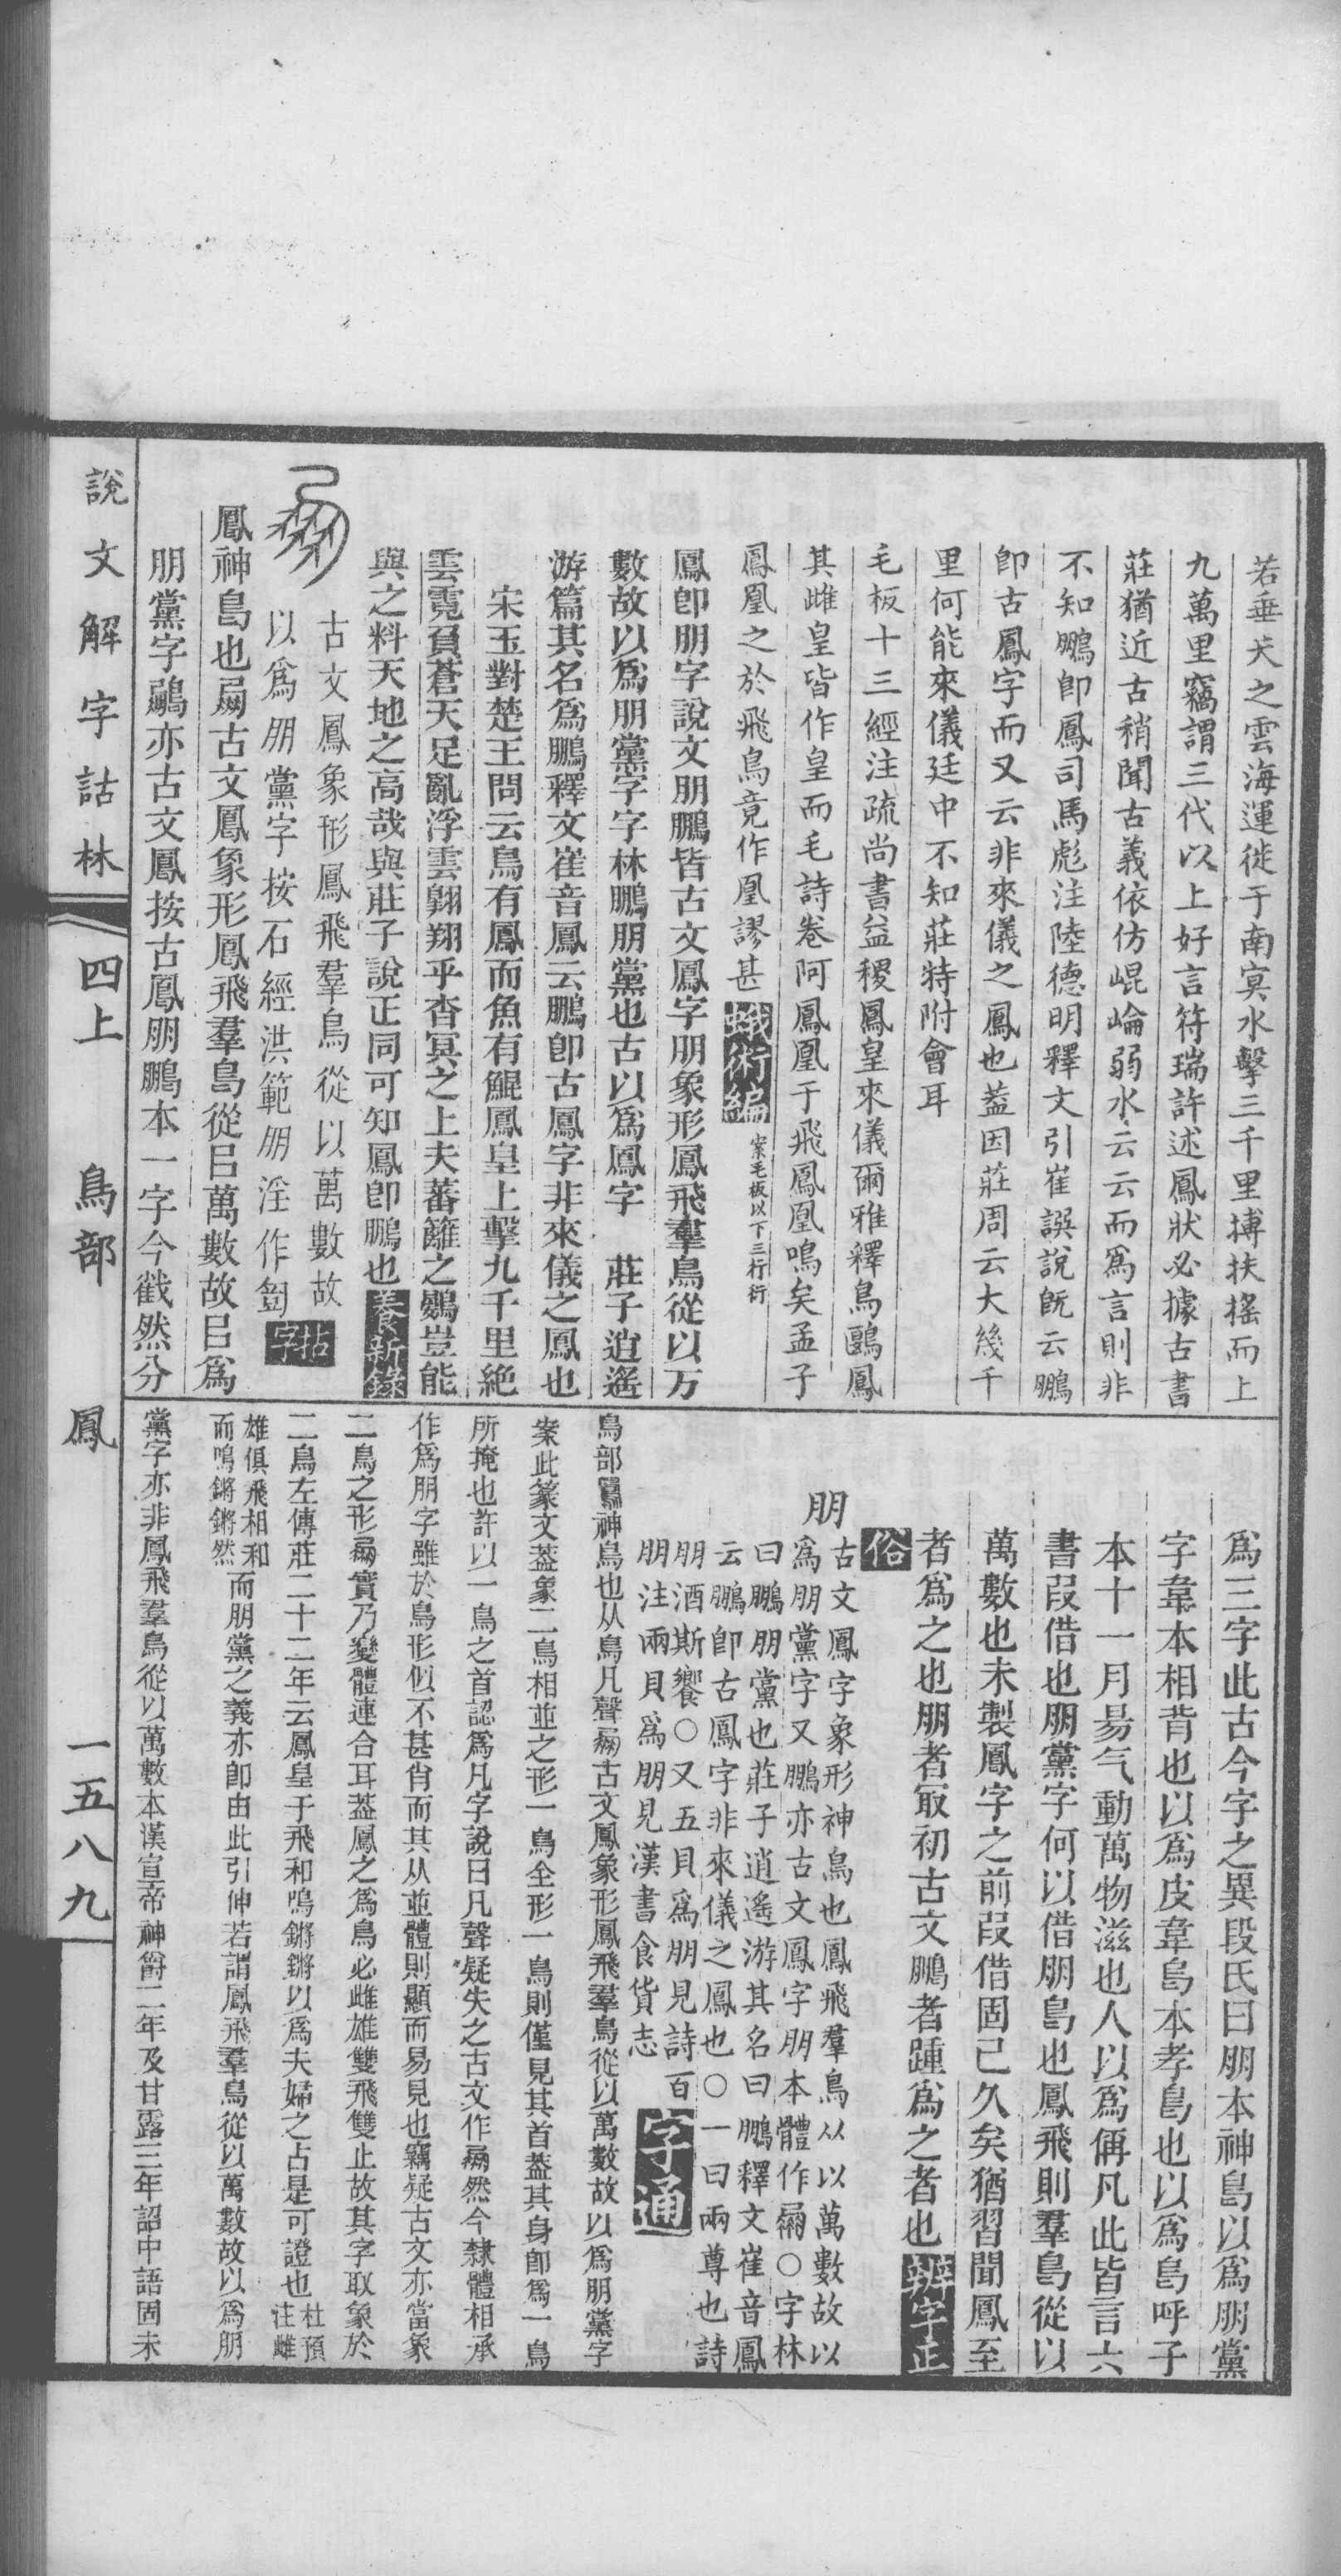 若垂天之雲海運徙于南冥水擊三千里搏扶搖而上
九萬里竊謂三代以上好言符瑞許述鳳狀必據古書
莊猶近古稍聞古義依仿崐崘弱水云云而爲言則非
不知鵬卽鳳司馬彪注陸德明釋文引崔譔說旣云鵬
卽古鳳字而又云非來儀之鳳也葢因莊周云大幾千
里何能來儀廷中不知莊特附會耳
毛板十三經注疏尚書益稷鳳皇來儀爾雅釋鳥鶠鳳
其雌皇皆作皇而毛詩卷阿鳳凰于飛鳳凰鳴矣孟子
鳳凰之於飛鳥竟作凰謬甚 蛾術編 案毛板以下三行衍
鳳卽朋字說文朋鵬皆古文鳳字朋象形鳳飛羣鳥從以万
數故以爲朋黨字字林鵬朋黨也古以爲鳳字 莊子逍遙
游篇其名爲鵬釋文崔音鳳云鵬卽古鳳字非來儀之鳳也
宋玉對楚王問云鳥有鳳而魚有鯤鳳皇上擊九千里絶
雲霓負蒼天足亂浮雲翺翔乎杳冥之上夫蕃籬之鷃豈能
與之料天地之高哉與莊子說正同可知鳳卽鵬也 養新錄
古文鳳象形鳳飛羣鳥從以萬數故
以爲朋黨字按石經洪範朋淫作 拈字
鳳神鳥也朋古文鳳象形鳳飛羣鳥從㠯萬數故㠯爲
朋黨字鵬亦古文鳳按古鳳朋鵬本一字今截然分
爲三字此古今字之異段氏曰朋本神鳥以爲朋黨
字韋本相背也以爲皮韋烏本孝烏也以爲烏呼子
本十一月昜气動萬物滋也人以爲偁凡此皆言六
書叚借也朋黨字何以借朋鳥也鳳飛則羣鳥從以
萬數也未製鳳字之前叚借固已久矣猶習聞鳳至
者爲之也朋者冣初古文鵬者踵爲之者也 辨字正
俗
朋 古文鳳字象形神鳥也鳳飛羣鳥从以萬數故以
爲朋黨字又鵬亦古文鳳字朋本體作朋○字林
曰鵬朋黨也莊子逍遙游其名曰鵬釋文崔音鳳
云鵬卽古鳳字非來儀之鳳也○一曰兩尊也詩
朋酒斯饗○又五貝爲朋見詩百
朋注兩貝爲朋見漢書食貨志 字通
鳥部鳳神鳥也从鳥凡聲朋古文鳳象形鳳飛羣鳥從以萬數故以爲朋黨字
案此篆文葢象二鳥相並之形一鳥全形一鳥則僅見其首葢其身卽爲一鳥
所掩也許以一鳥之首認爲凡字說曰凡聲疑失之古文作朋然今隸體相承
作爲朋字雖於鳥形似不甚肖而其从並體則顯而易見也竊疑古文亦當象
二鳥之形朋實乃變體連合耳葢鳳之爲鳥必雌雄雙飛雙止故其字取象於
二鳥左傳莊二十二年云鳳皇于飛和鳴鏘鏘以爲夫婦之占是可證也杜預注雌
雄俱飛相和而鳴鏘鏘然而朋黨之義亦卽由此引伸若謂鳳飛羣鳥從以萬數故以爲朋
黨字亦非鳳飛羣鳥從以萬數本漢宣帝神爵二年及甘露三年詔中語固未
說文解字詁林 四上 鳥部 鳳 一五八九